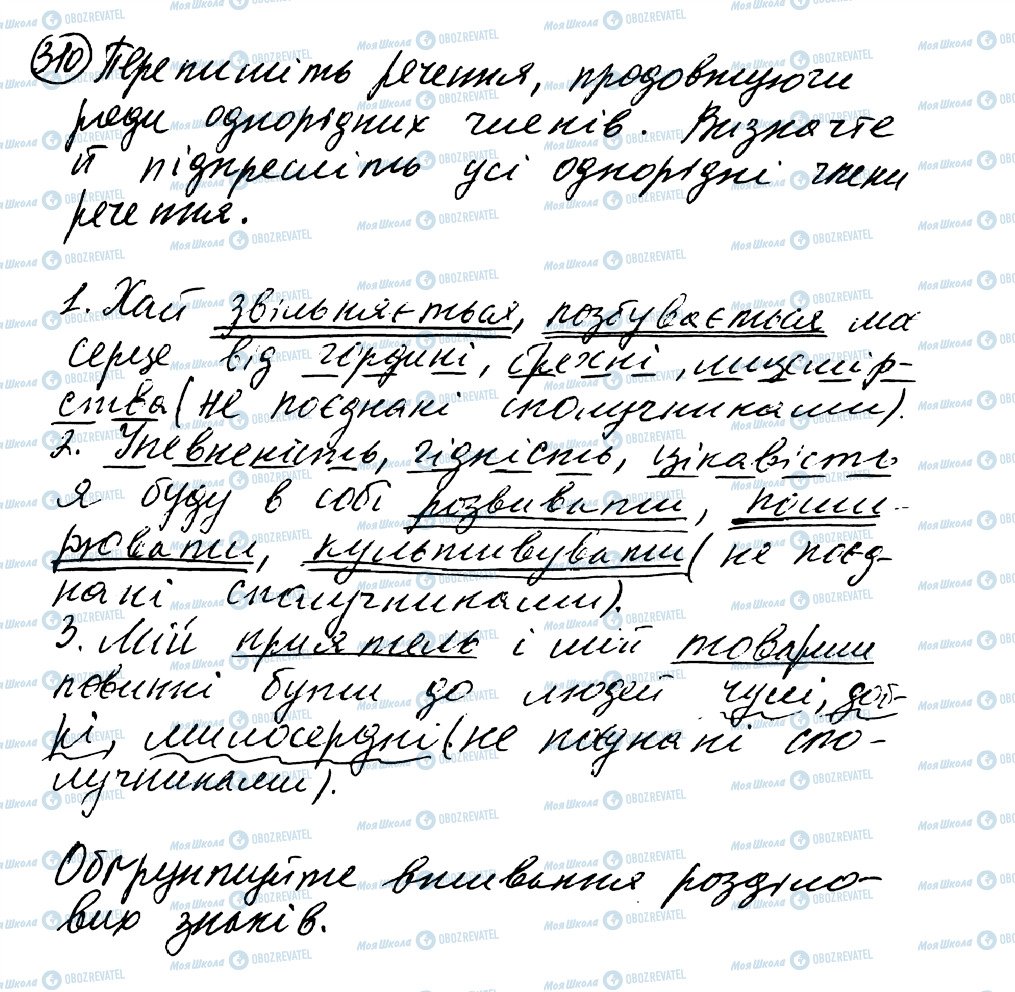 310 Перепишіть речення, продовжуючи
ряди однорідних членів. Визначте
й підкресліть усі однорідні члени
речення.
1. Хай звільняється, позбувається моє
серце від гордині, брехні, лицемір-
ства (не поєднані сполучниками).
2. Упевненість, гідність, цікавість
я буду в собі розвивати, поши-
рювати, культивувати (не поєд-
нані сполучниками).
3. Мій приятель і мій товариш
повинні бути до людей чуйні, доб-
рі, милосердні (не поєднані спо-
лучниками).
Обґрунтуйте вживання розділо-
вих знаків.